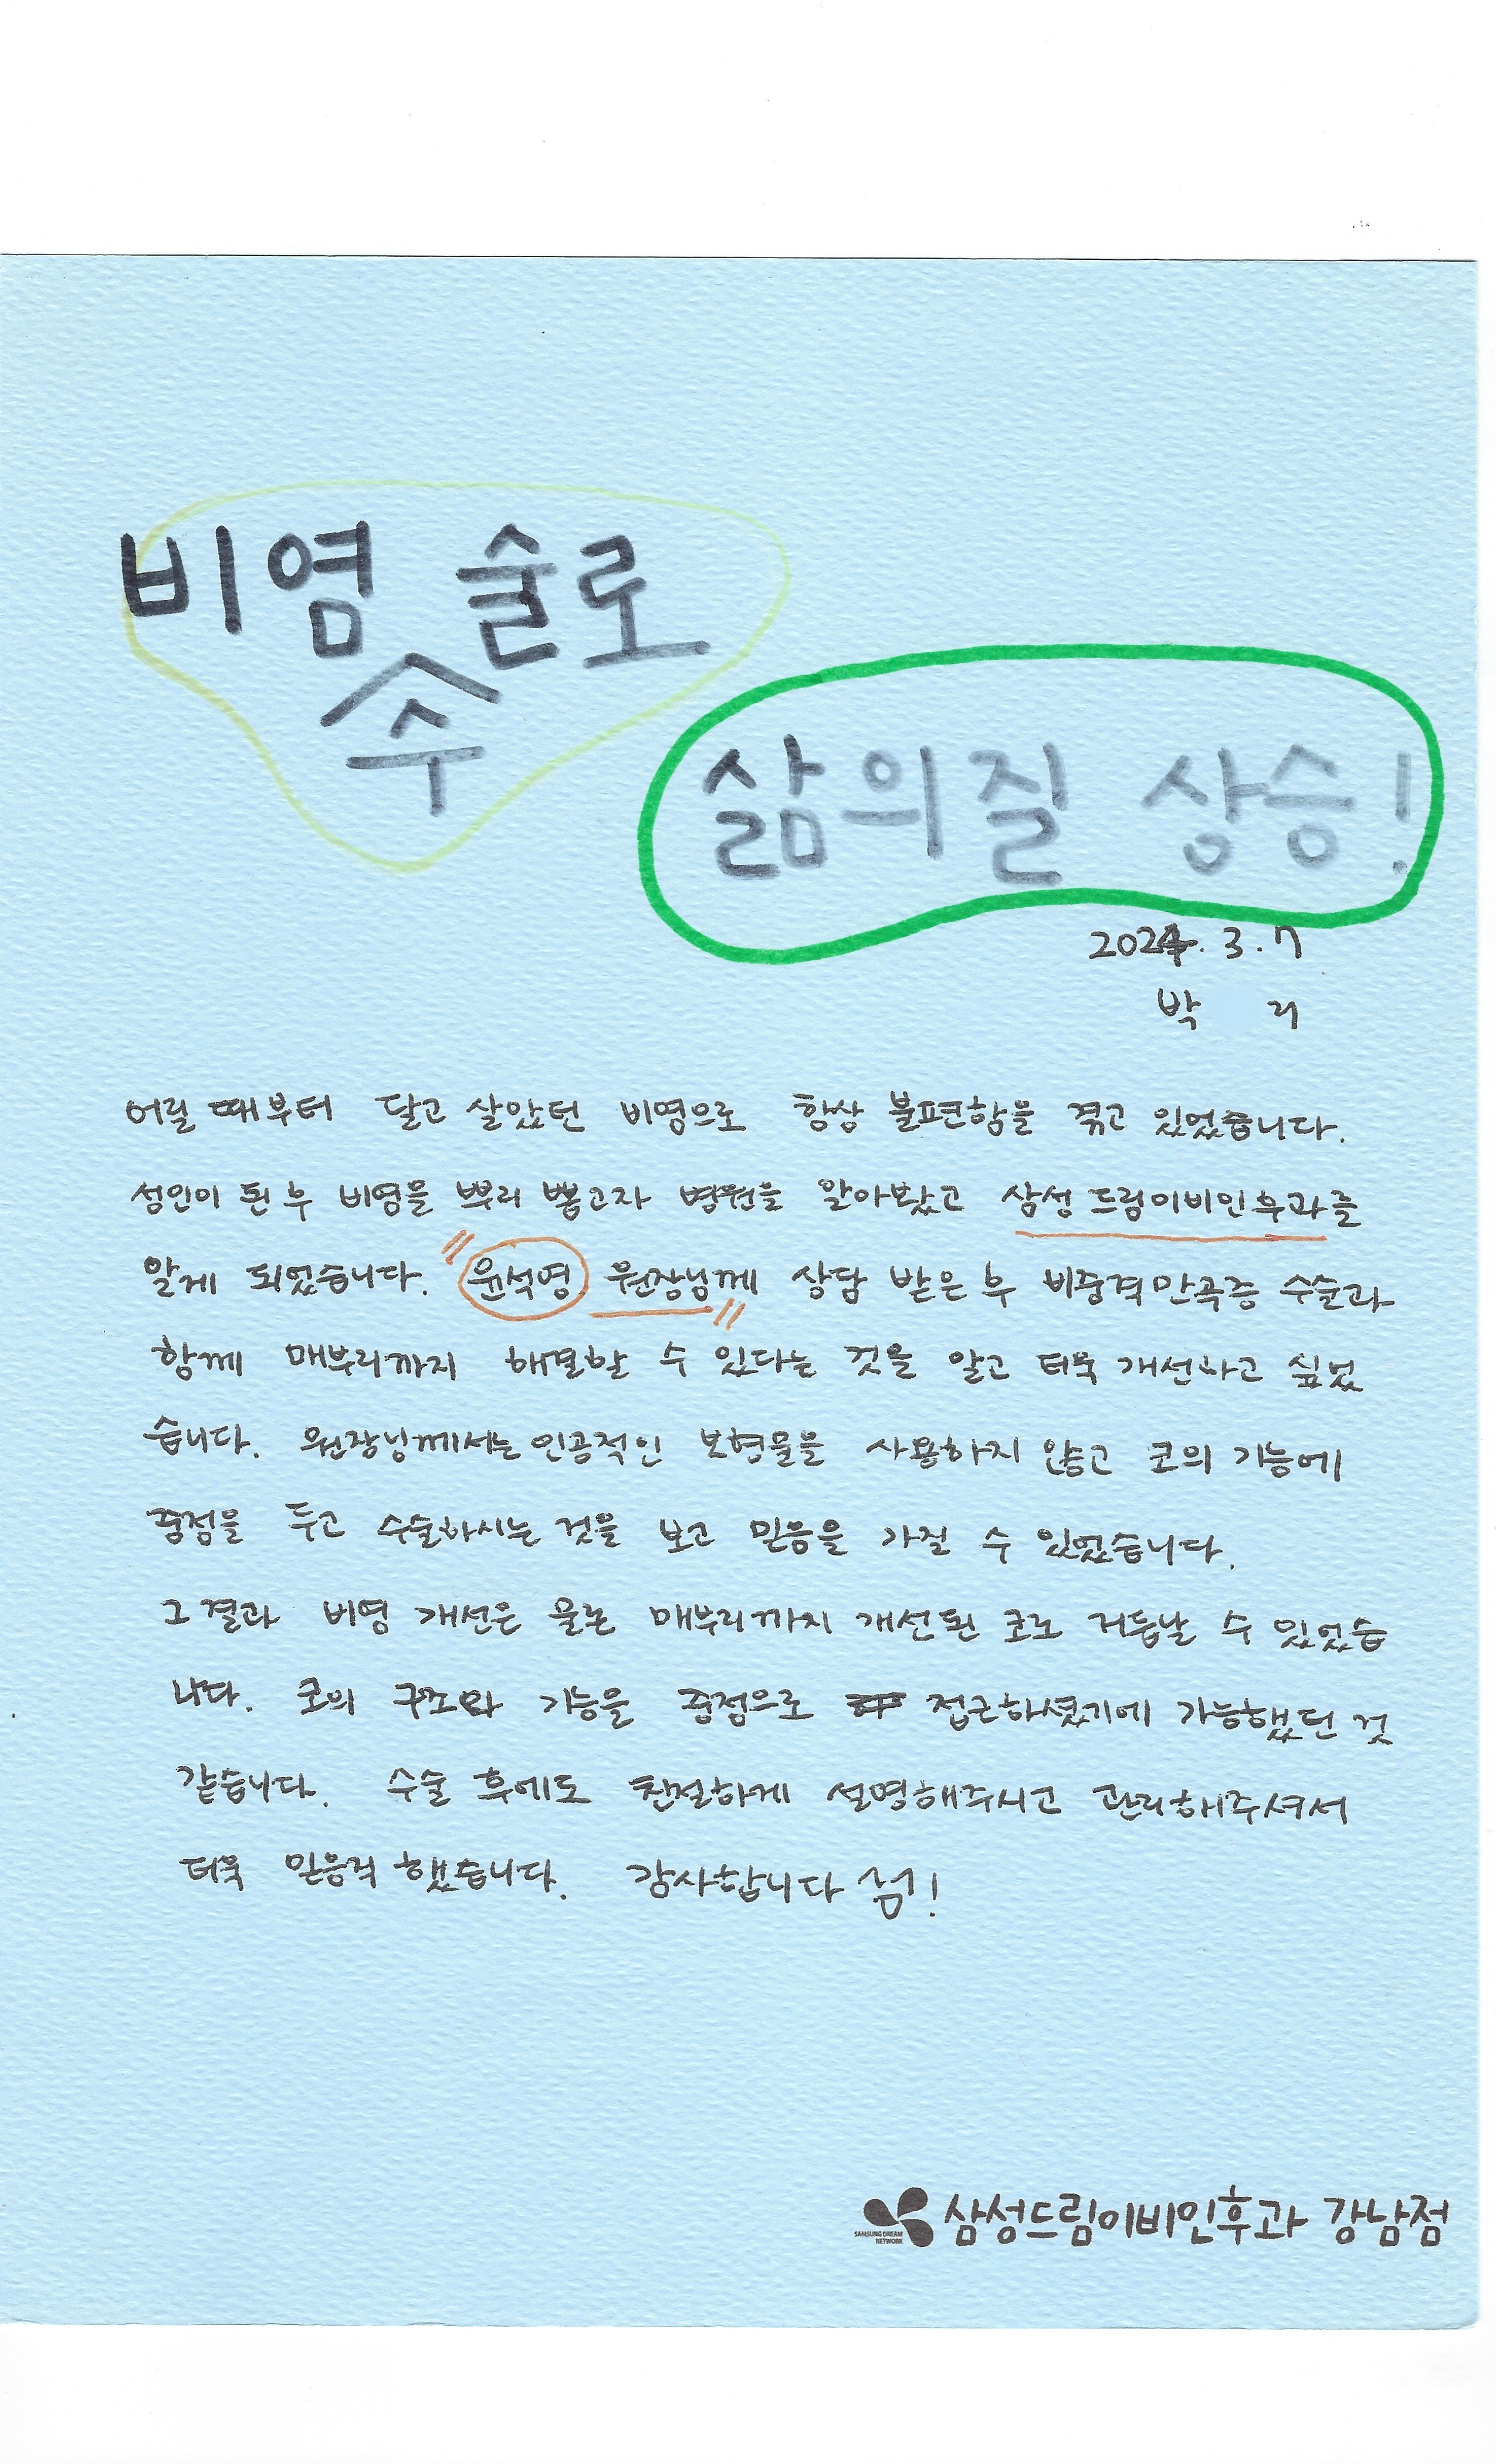 비염 수술로
삶의질 상승!
2024. 3. 7
박 리
어릴 때부터 달고 살았던 비염으로 항상 불편함을 겪고 있었습니다.
성인이 된 후 비염을 뿌리 뽑고자 병원을 알아봤고 삼성드림이비인후과를
알게 되었습니다. "윤석영 원장님께" 상담 받은 후 비중격만곡증 수술과
함께 매부리까지 해결할 수 있다는 것을 알고 더욱 개선하고 싶었
습니다. 원장님께서는 인공적인 보형물을 사용하지 않고 코의 기능에
중점을 두고 수술하시는 것을 보고 믿음을 가질 수 있었습니다.
그 결과 비염 개선은 물론 매부리까지 개선된 코로 거듭날 수 있었습
니다. 코의 구조와 기능을 중점으로 접근하셨기에 가능했던 것
같습니다. 수술 후에도 친절하게 설명해주시고 관리해주셔서
더욱 믿음직 했습니다. 감사합니다 섬!
SAMSUNG DREAM
NETWORK
삼성드림이비인후과 강남점